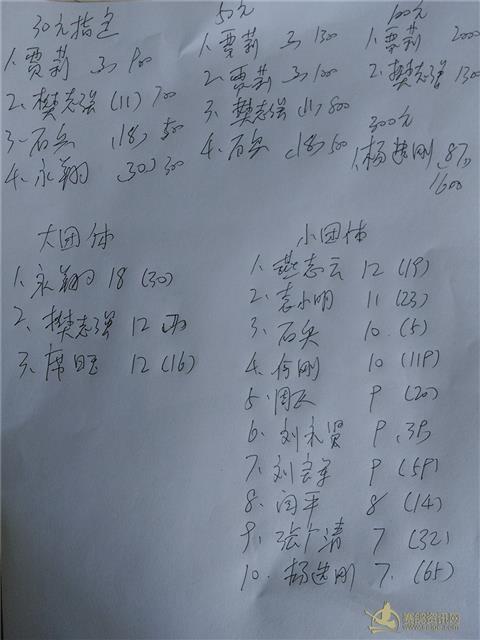 30元指定
1、贾莉 3) 900
2、樊志强 (11) 700
3、石兵 (18) 50
4、永翔 (30) 30
50元
1、贾莉 3) 1300
2、贾莉 3) 100
3、樊志强 (11) 800
4、石兵 (18) 50
100元
1、贾莉 2000
2、樊志强 1300
300元
1、杨 刚 (87)
1600
大团体
1、永翔 18 (30)
2、樊志强 12
3、席 12 (16)
小团体
1、燕志云 12 (19)
2、袁小明 11 (23)
3、石兵 10 (5)
4、何刚 10 (119)
5、周 9 (20)
6、刘永贤 9 (39)
7、刘 9 (59)
8、闫平 8 (14)
9、张广清 7 (32)
10、杨 刚 7 (65)
赛鸽资讯网